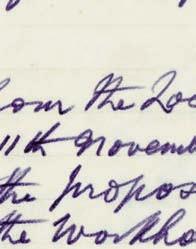 from the Loc
11th Novemb
the propos
the Workho